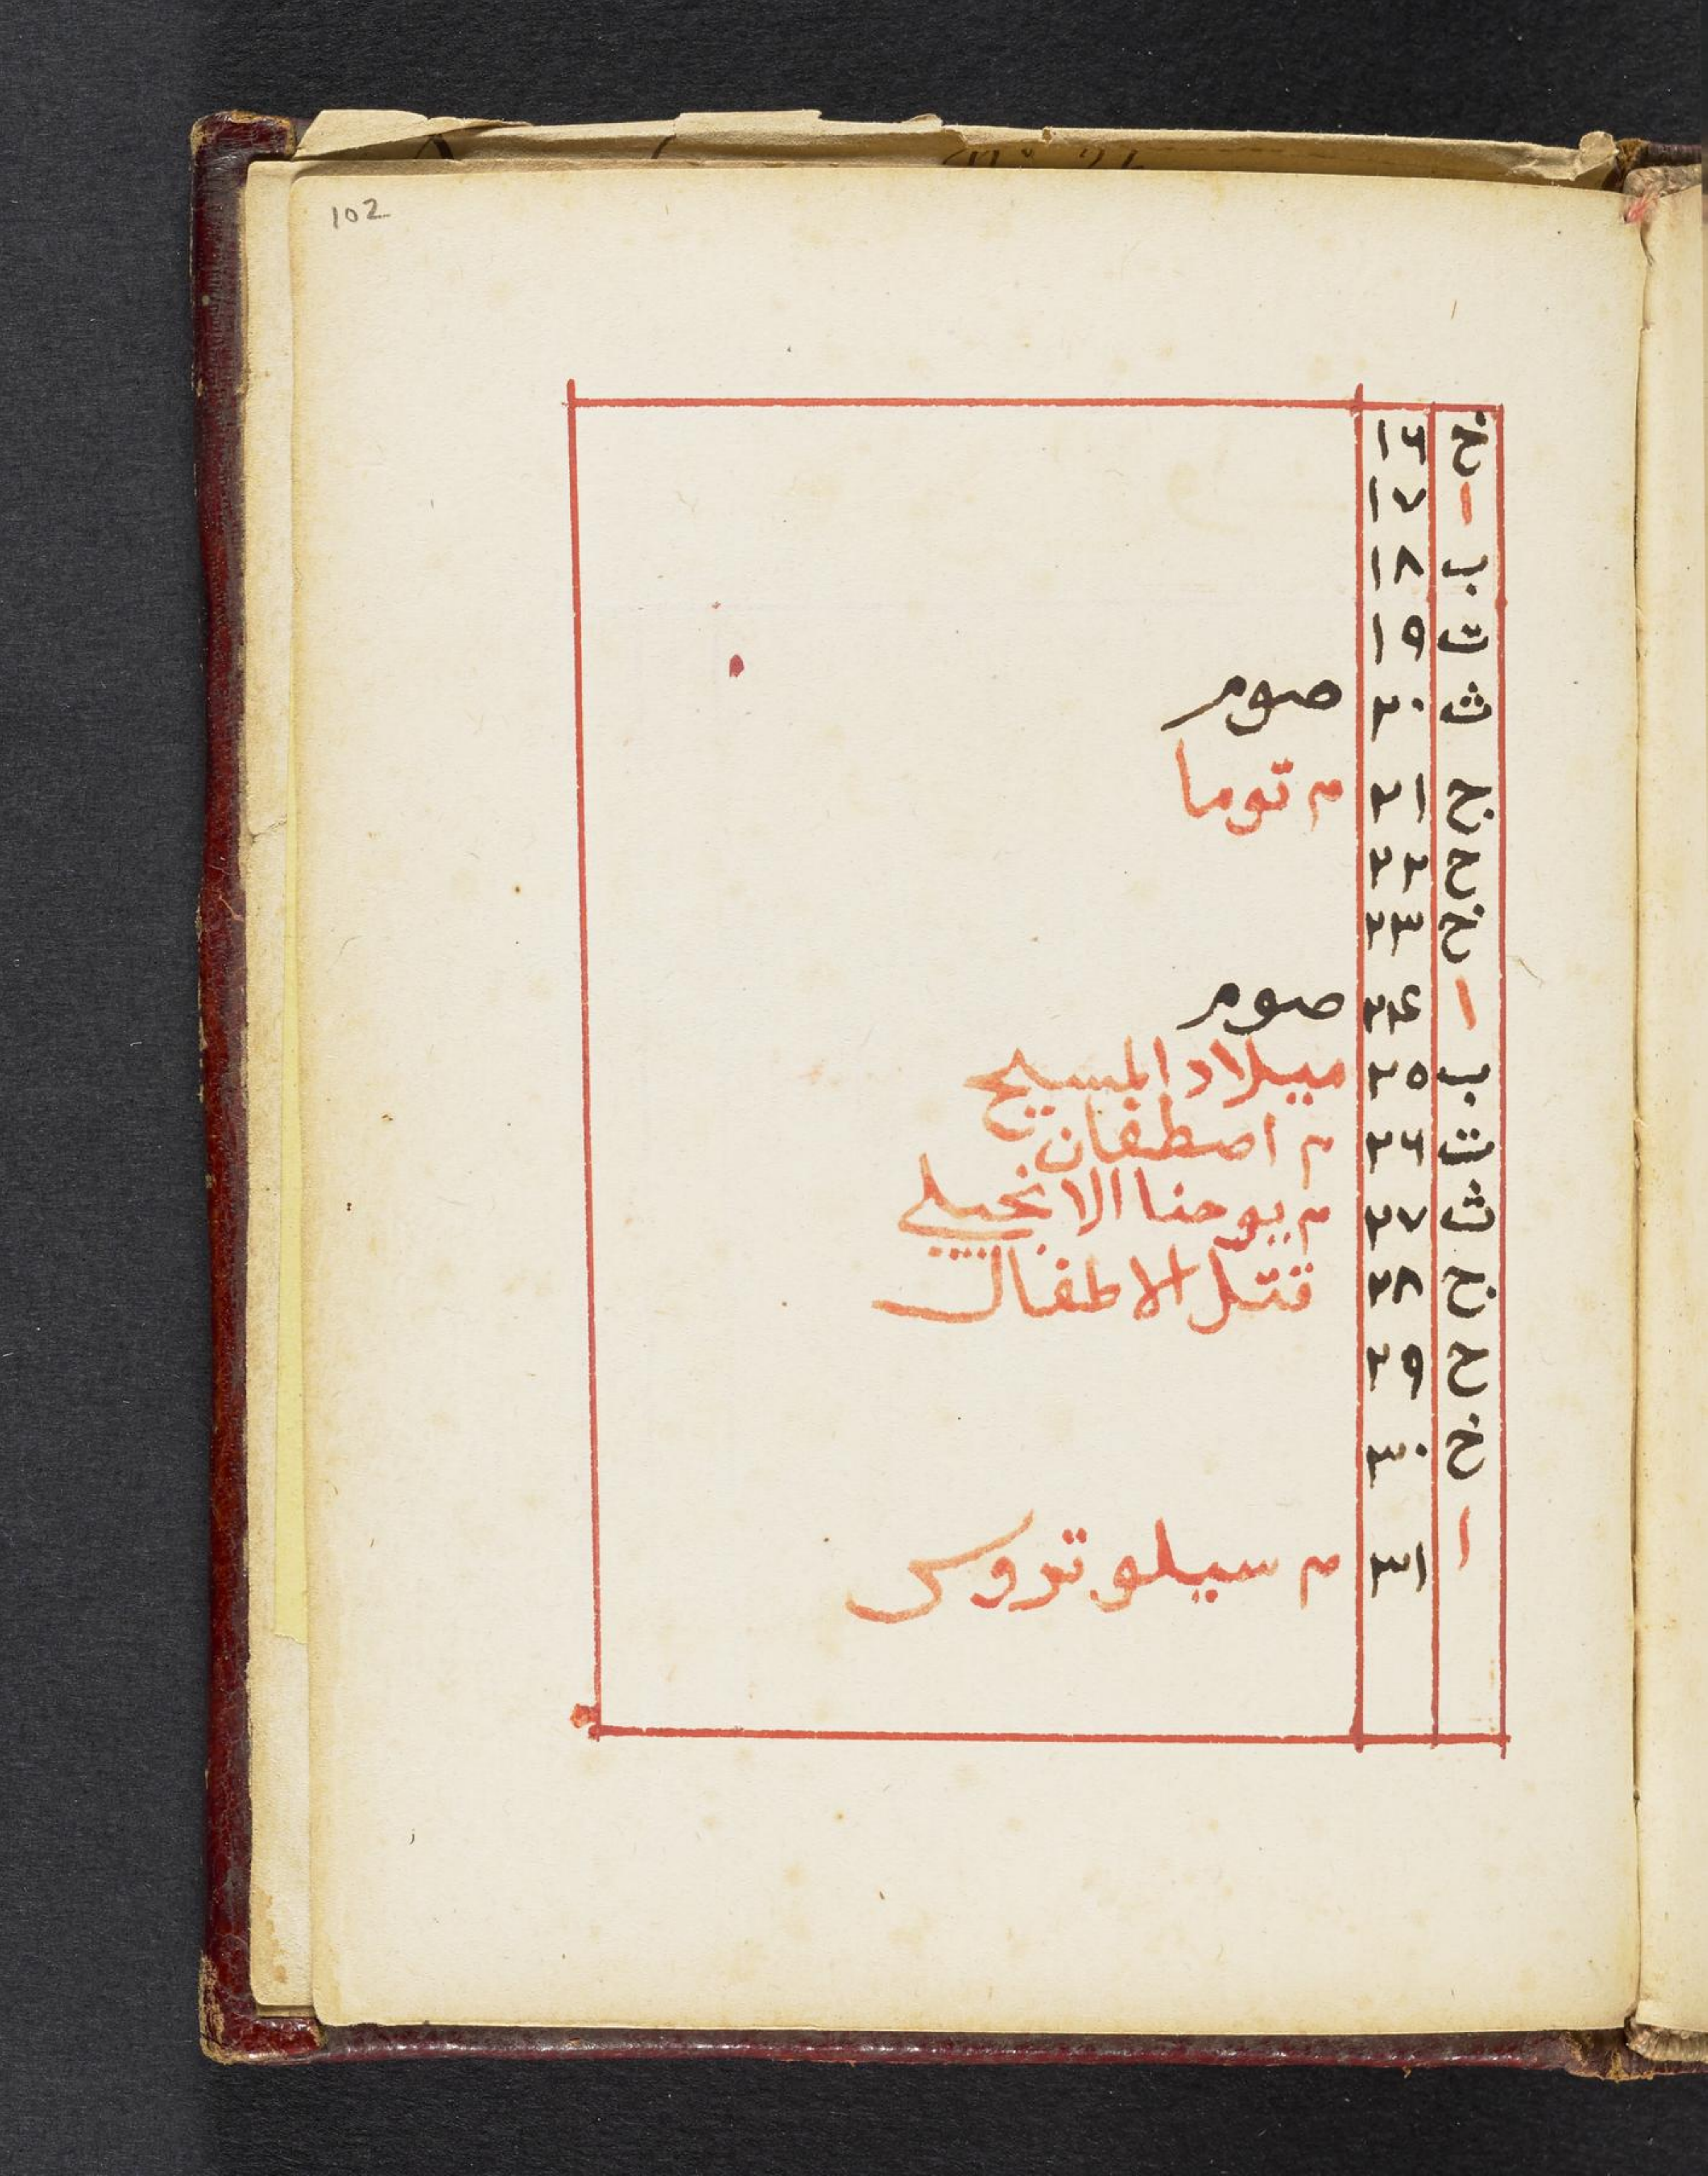 102
خ ١٦
ا ١٧
ب ١٨
ت ١٩
ث ٢٠ صوم
ج ٢١ م توما
ح ٢٢
خ ٢٣
ا ٢٤ صوم
ب ٢٥ ميلاد المسيح
ت ٢٦ م اصطفان
ث ٢٧ م يوحنا الانجيلي
ج ٢٨ قتل الاطفال
ح ٢٩
خ ٣٠
ا ٣١ م سيلوتروس